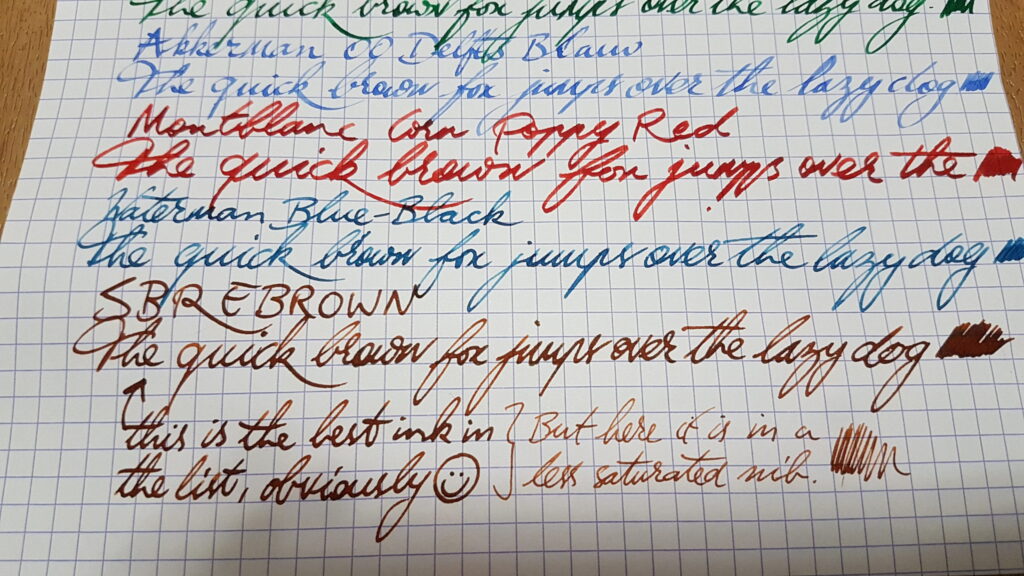 The quick brown fox jumps over the lazy dog.
Akkerman 00 Delfts Blauw
The quick brown fox jumps over the lazy dog
Montblanc Corn Poppy Red
The quick brown fox jumps over the
Waterman Blue-Black
The quick brown fox jumps over the lazy dog
SBREBROWN
The quick brown fox jumps over the lazy dog
this is the best ink in
the list, obviously
But here it is in a
less saturated nib.